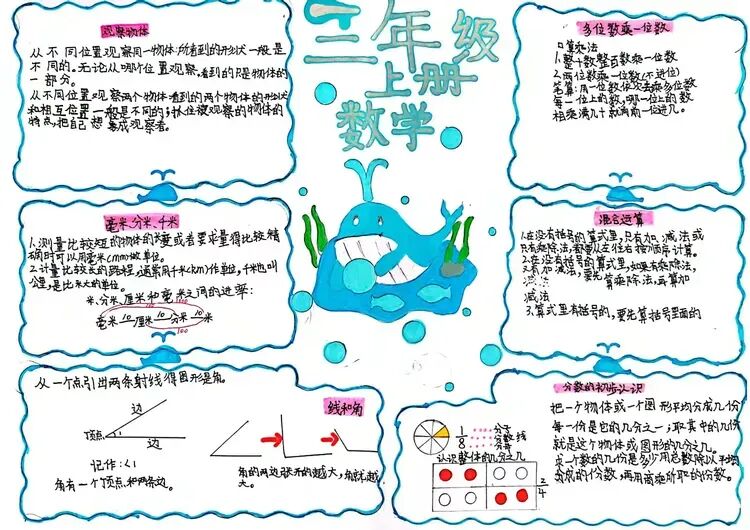 三年级
上册
数学
观察物体
从不同位置观察同一物体,所看到的形状一般是
不同的。无论从哪个位置观察,看到的只是物体的
一部分。
从不同位置观察两个物体看到的两个物体的形状
和相互位置一般是不同的;抓住被观察的物体的
特点,把自己想象成观察者。
毫米、分米、千米
1.测量比较短的物体的长度或者要求量得比较精
确时可以用毫米(mm)做单位。
2.计量比较长的路程,通常用千米(km)作单位,千米也叫
公里,是比米大的单位。
米、分米、厘米和毫米之间的进率:
100
毫米 10 厘米 10 分米 10 米
100
从一个点引出两条射线得图形是角。
线和角
边
顶点
1
边
记作:∠1
角有一个顶点和两条边。
角的两边张开的越大,角就越
大。
多位数乘一位数
口算乘法
1.整十数整百数乘一位数
2.两位数乘一位数(不进位)
笔算:用一位数依次去乘多位数
每一位上的数,哪一位上的数
相乘满几十就向前一位进几。
混合运算
1.在没有括号的算式里,只有加、减法或
只有乘除法,都要从左往右按顺序计算。
2.在没有括号的算式里,如果有乘除法,
又有加减法,要先算乘除法,再算加
减法
3.算式里有括号的,要先算括号里面的
分数的初步认识
1
8
分子
分数线
分母
认识整体的几分之几
2
4
把一个物体或一个图形平均分成几份
每一份是它的几分之一;取其中的几份
就是这个物体或图形的几分之几。
求一个数的几份是多少用总数除以平均
分成的份数,再用商乘所取的份数。